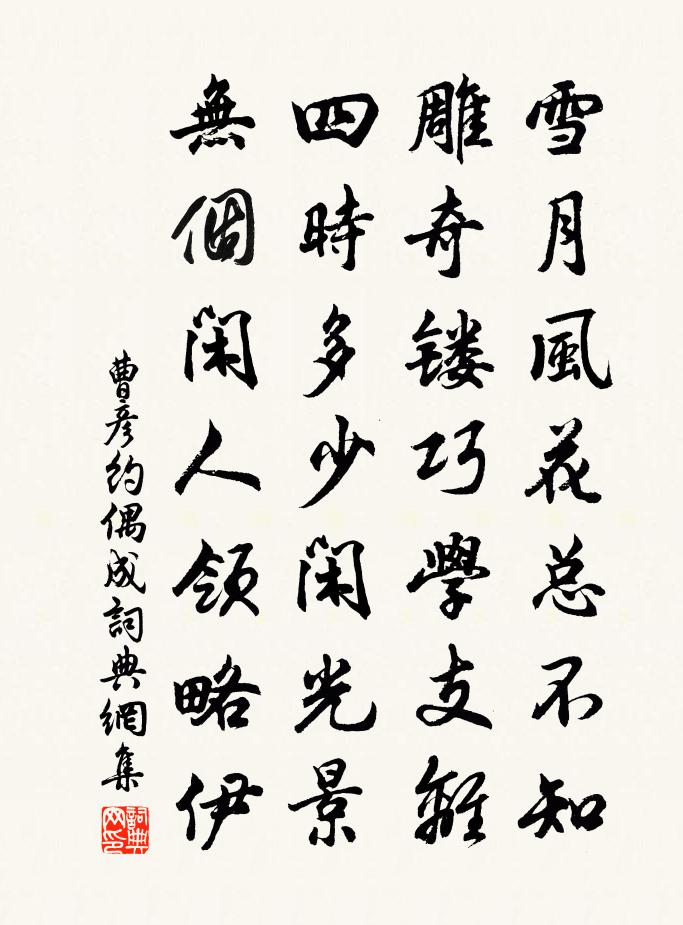 雪月風花总不知
雕奇镂巧學支離
四時多少閑光景
無個閑人領略伊
曹彦約偶成詞典網集
詞典网印